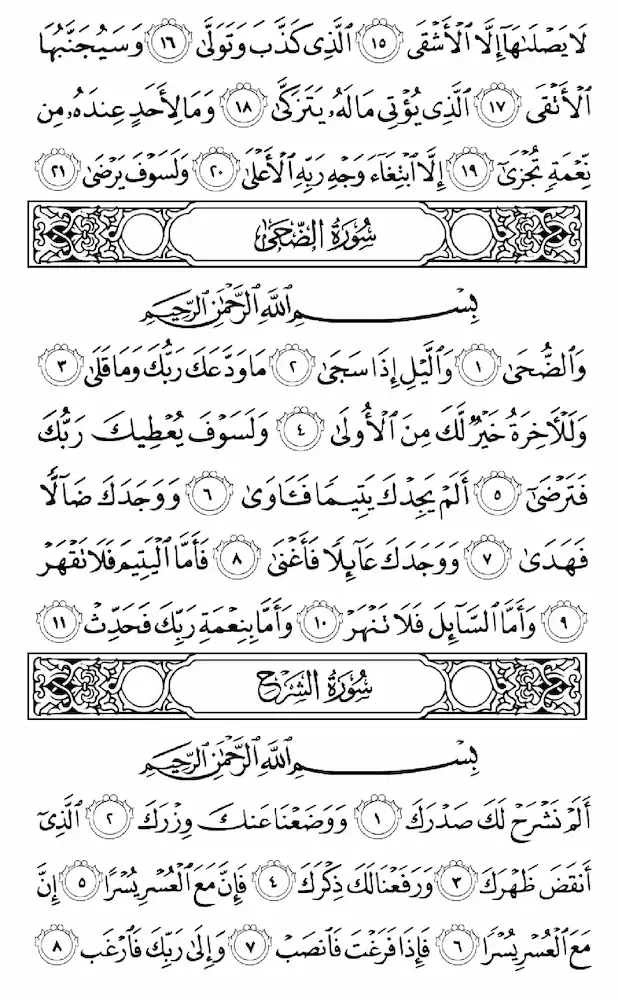 لَا يَصْلَىٰهَآ إِلَّا ٱلْأَشْقَى ١٥ ٱلَّذِى كَذَّبَ وَتَوَلَّىٰ ١٦ وَسَيُجَنَّبُهَا
ٱلْأَتْقَى ١٧ ٱلَّذِى يُؤْتِى مَالَهُۥ يَتَزَكَّىٰ ١٨ وَمَا لِأَحَدٍ عِندَهُۥ مِن
نِّعْمَةٍ تُجْزَىٰٓ ١٩ إِلَّا ٱبْتِغَآءَ وَجْهِ رَبِّهِ ٱلْأَعْلَىٰ ٢٠ وَلَسَوْفَ يَرْضَىٰ ٢١
سُورَةُ الضُّحَىٰ
بِسْمِ ٱللَّهِ ٱلرَّحْمَٰنِ ٱلرَّحِيمِ
وَٱلضُّحَىٰ ١ وَٱلَّيْلِ إِذَا سَجَىٰ ٢ مَا وَدَّعَكَ رَبُّكَ وَمَا قَلَىٰ ٣
وَلَلْءَاخِرَةُ خَيْرٌ لَّكَ مِنَ ٱلْأُولَىٰ ٤ وَلَسَوْفَ يُعْطِيكَ رَبُّكَ
فَتَرْضَىٰٓ ٥ أَلَمْ يَجِدْكَ يَتِيمًا فَـَٔاوَىٰ ٦ وَوَجَدَكَ ضَآلًّا
فَهَدَىٰ ٧ وَوَجَدَكَ عَآئِلًا فَأَغْنَىٰ ٨ فَأَمَّا ٱلْيَتِيمَ فَلَا تَقْهَرْ
٩ وَأَمَّا ٱلسَّآئِلَ فَلَا تَنْهَرْ ١٠ وَأَمَّا بِنِعْمَةِ رَبِّكَ فَحَدِّثْ ١١
سُورَةُ الشَّرْحِ
بِسْمِ ٱللَّهِ ٱلرَّحْمَٰنِ ٱلرَّحِيمِ
أَلَمْ نَشْرَحْ لَكَ صَدْرَكَ ١ وَوَضَعْنَا عَنكَ وِزْرَكَ ٢ ٱلَّذِىٓ
أَنقَضَ ظَهْرَكَ ٣ وَرَفَعْنَا لَكَ ذِكْرَكَ ٤ فَإِنَّ مَعَ ٱلْعُسْرِ يُسْرًا ٥ إِنَّ
مَعَ ٱلْعُسْرِ يُسْرًا ٦ فَإِذَا فَرَغْتَ فَٱنصَبْ ٧ وَإِلَىٰ رَبِّكَ فَٱرْغَب ٨